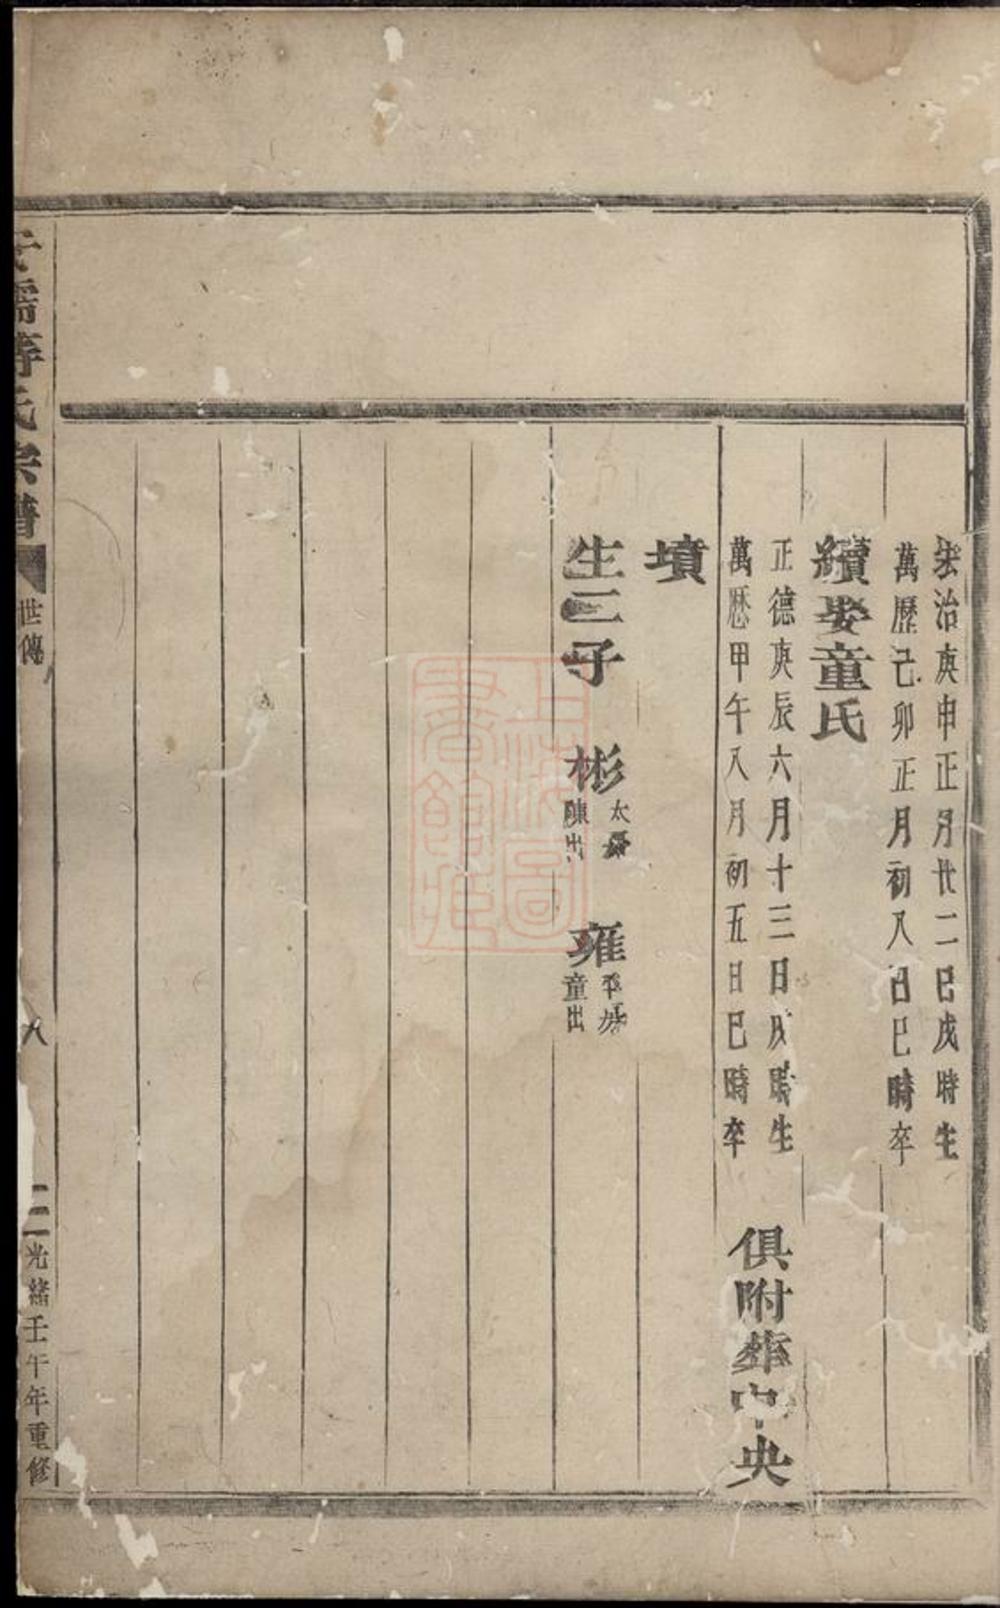 弘治庚申正月廿二日戌時生
萬歷己卯正月初八日巳時卒
續娶童氏
正德庚辰六月十三日戌時生
萬歷甲午八月初五日巳時卒
俱附葬中央
墳
生二子 彬 太 陳出 雍 童出
氏宗譜
世傳
八
二
光緒壬午年重修
上海圖書館藏